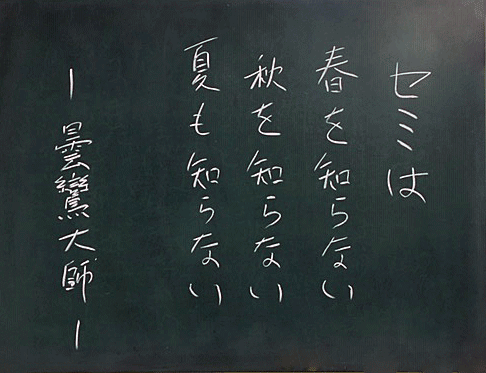 セミは
春を知らない
秋を知らない
夏も知らない
ー曇鸞大師ー